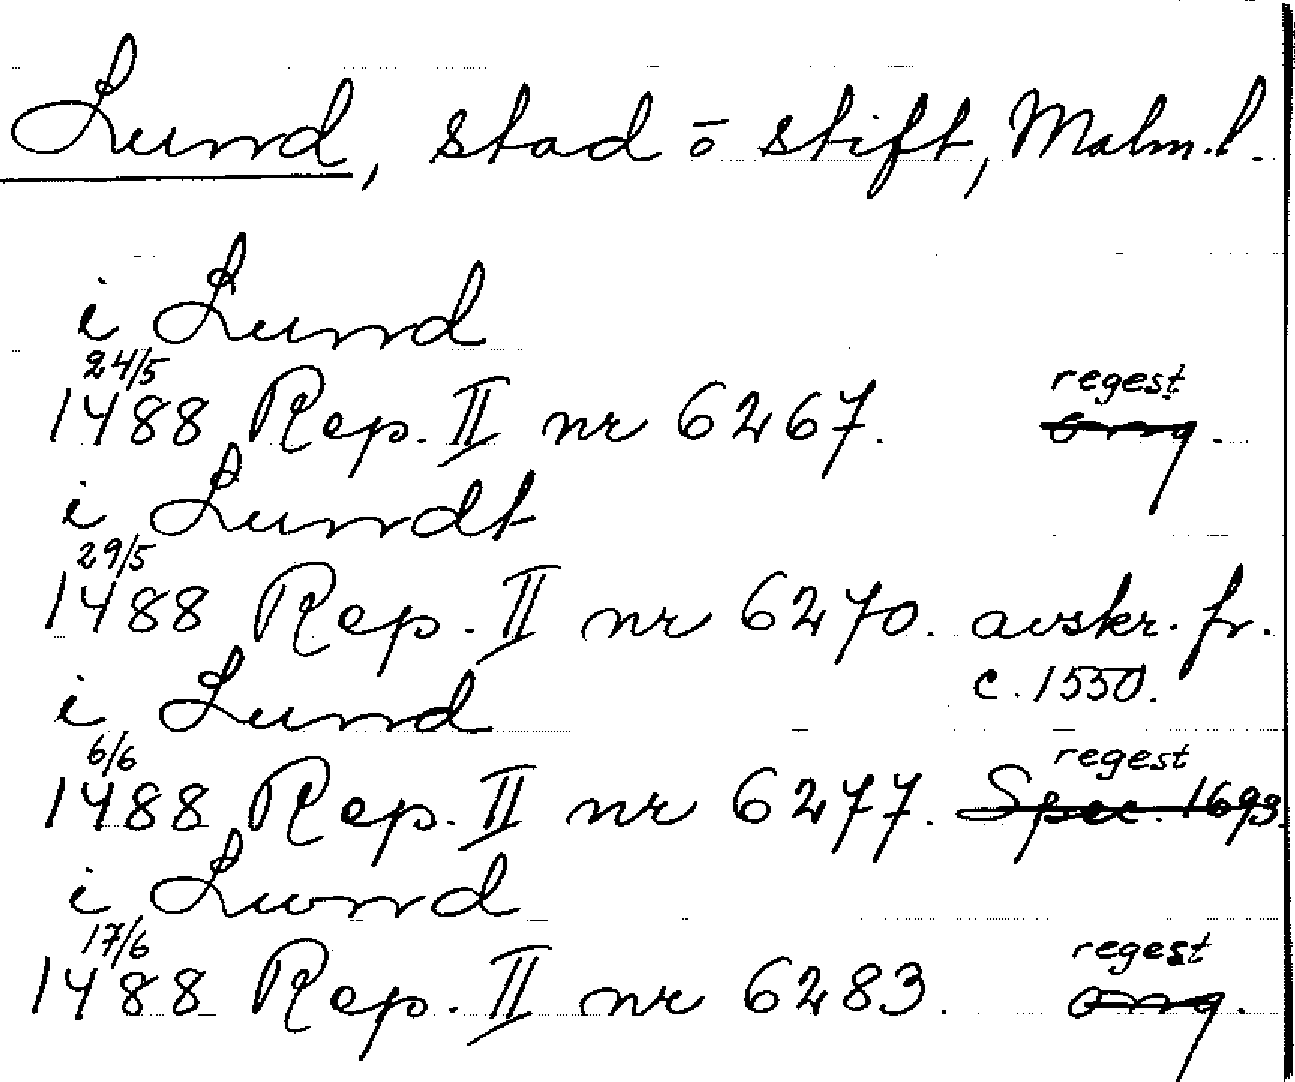 Lund, stad o stift, Malm.l.
i Lund
24/5 regest
1488 Rep. II nr 6267. orig.
i Lundt
29/5
1488 Rep. II nr 6270. avskr. fr.
i Lund c. 1550.
6/6 regest
1488 Rep. II nr 6277. Spec. 1693.
i Lund
17/6 regest
1488 Rep. II nr 6283. orig.